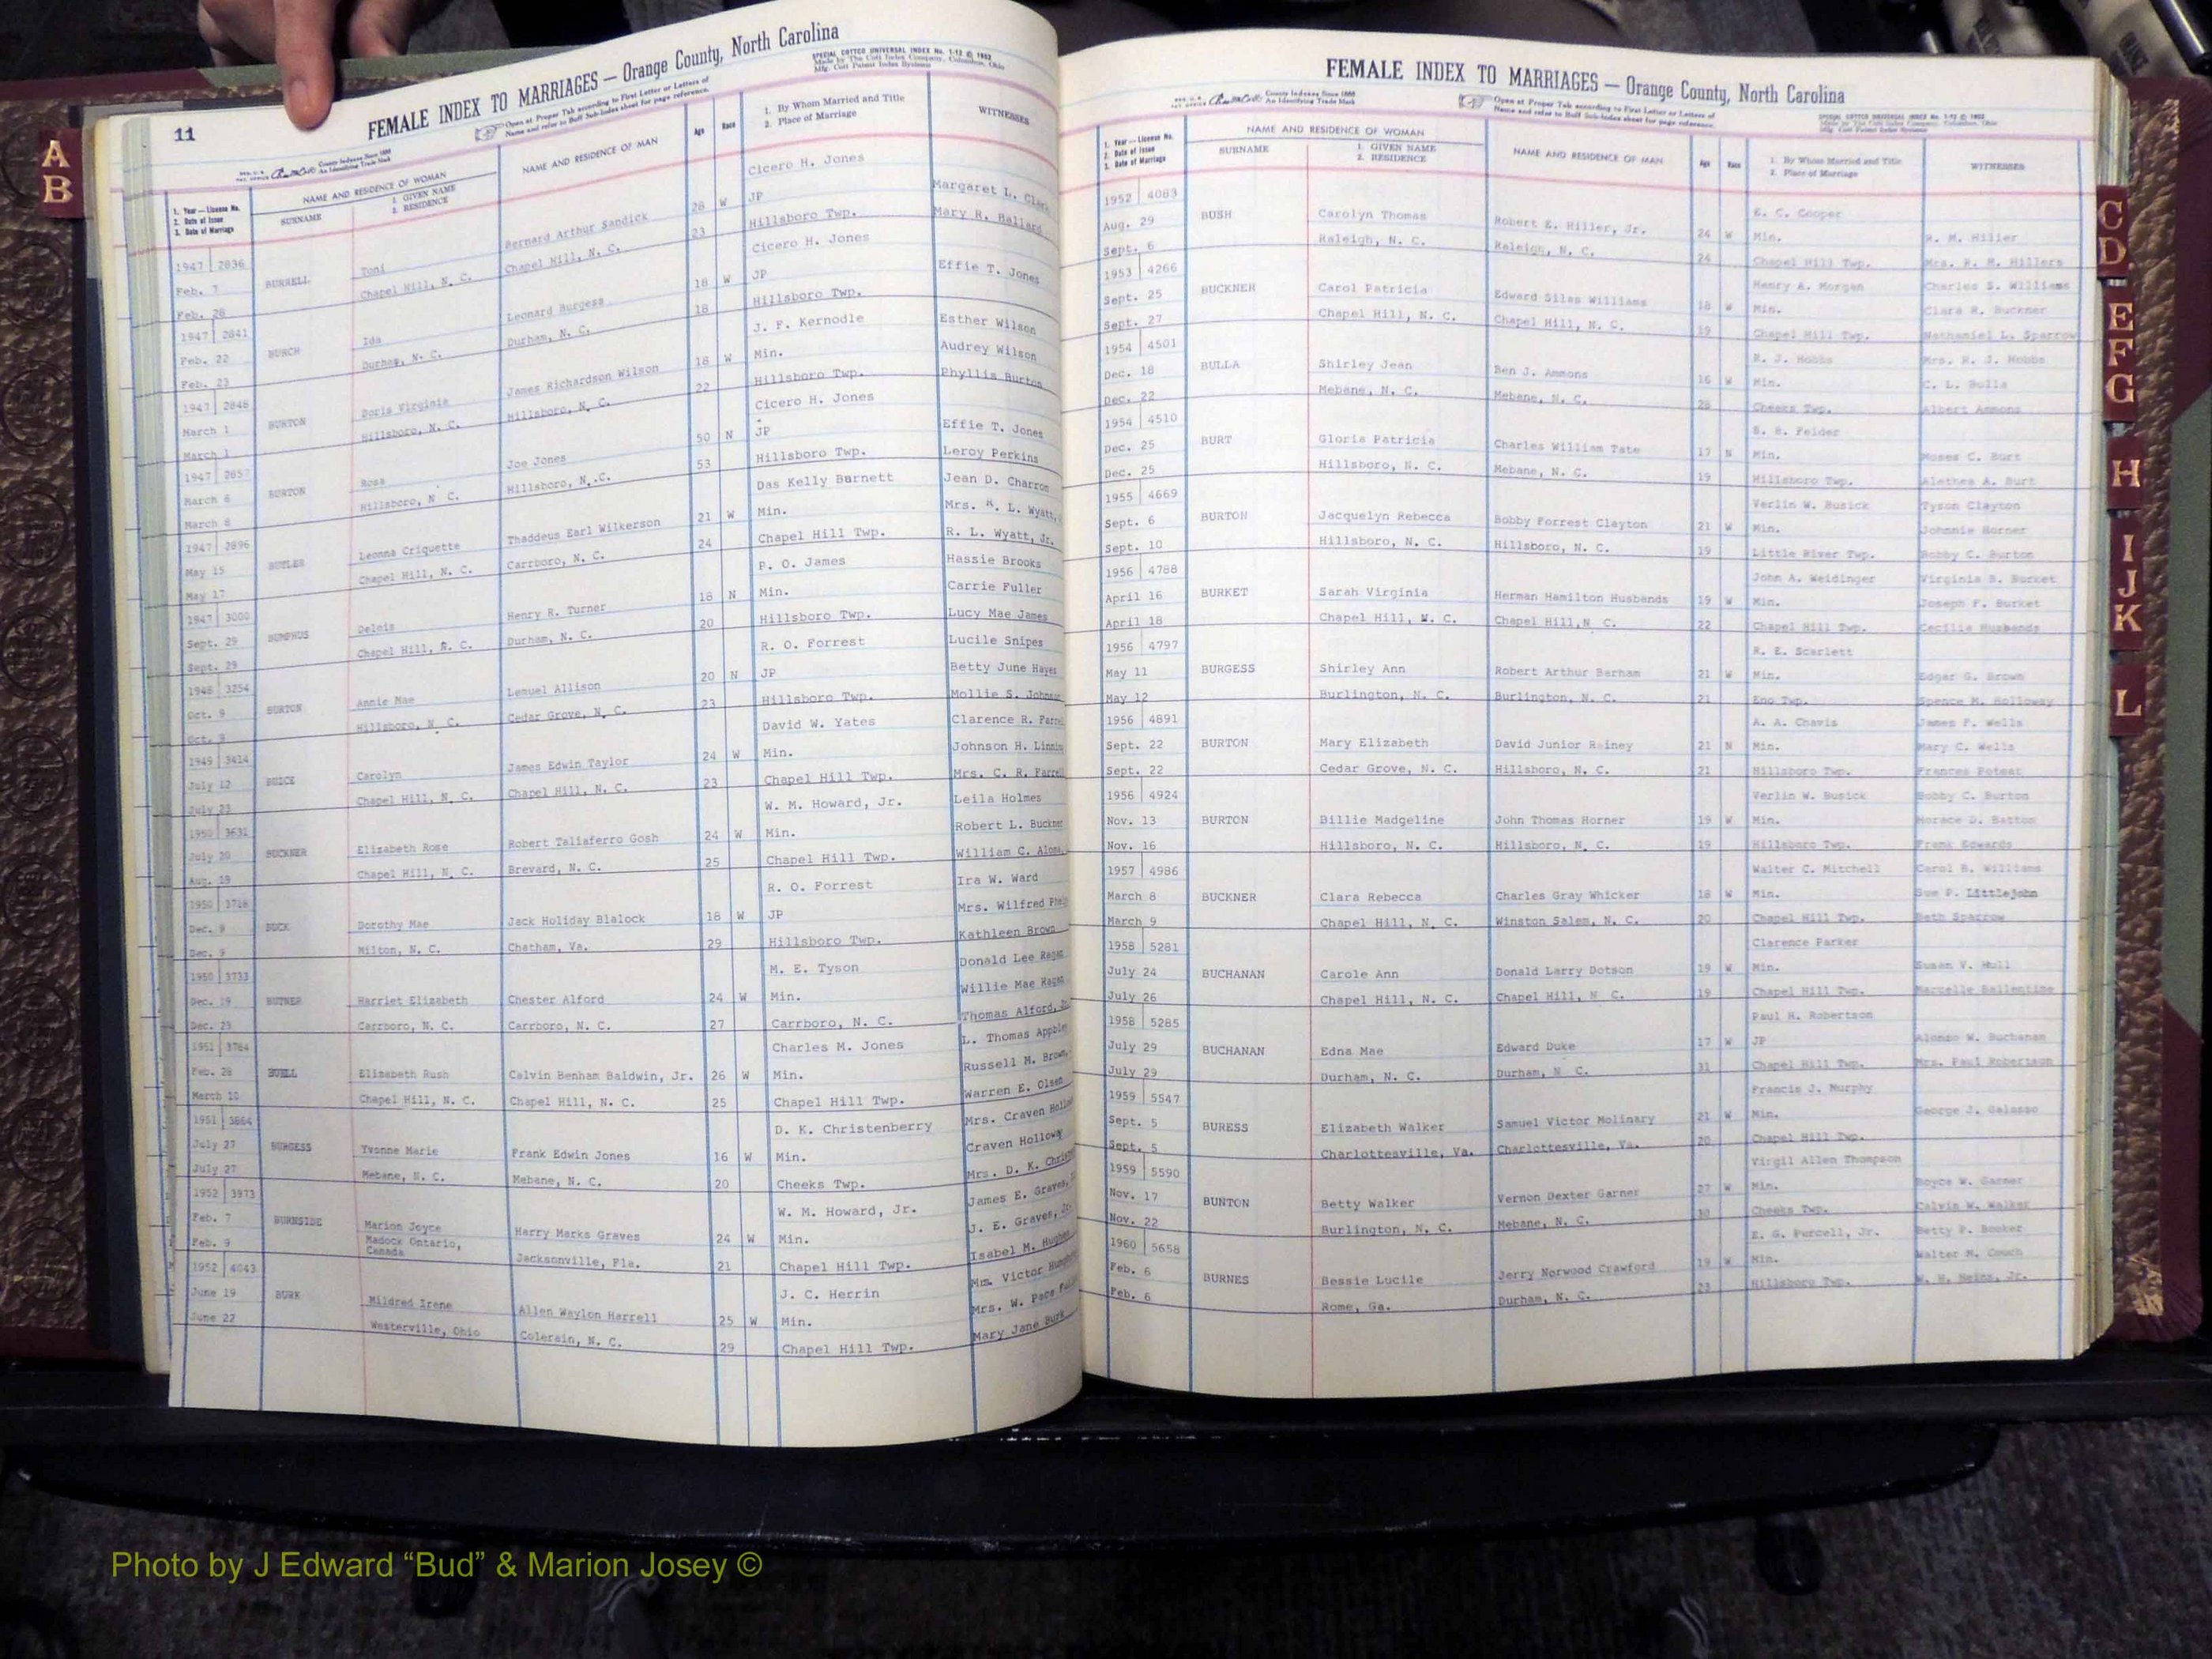 11
FEMALE INDEX TO MARRIAGES — Orange County, North Carolina
SPECIAL COTTCO UNIVERSAL INDEX No. 1-12 © 1952
Made by The Cott Index Company, Columbus, Ohio
Mfg. Cott Patent Index Systems
County Indexes Since 1888
An Identifying Trade Mark
Open at Proper Tab according to First Letter or Letters of
Name and refer to Buff Sub-Index sheet for page reference.
1. Year — License No.
2. Date of Issue
3. Date of Marriage
NAME AND RESIDENCE OF WOMAN
SURNAME
1. GIVEN NAME
2. RESIDENCE
NAME AND RESIDENCE OF MAN
Age
Race
1. By Whom Married and Title
2. Place of Marriage
WITNESSES
1947 2836 Cicero H. Jones
Feb. 7 BURRELL Toni Bernard Arthur Sandick 28 W JP Margaret L.
Feb. 28 Chapel Hill, N. C. Chapel Hill, N. C. 23 Hillsboro Twp. Mary R. Hallard
1947 2841 Cicero H. Jones
Feb. 22 BURCH Ida Leonard Burgess 18 W JP Effie T. Jones
Feb. 23 Durham, N. C. Durham, N. C. 18 Hillsboro Twp.
1947 2846 J. F. Kernodle Esther Wilson
March 1 BURTON Doris Virginia James Richardson Wilson 18 W Min. Audrey Wilson
March 1 Hillsboro, N. C. Hillsboro, N. C. 22 Hillsboro Twp. Phyllis Burton
1947 2857 Cicero H. Jones
March 8 BURTON Rosa Joe Jones 50 N JP Effie T. Jones
March 8 Hillsboro, N C. Hillsboro, N. C. 53 Hillsboro Twp. Leroy Perkins
1947 2896 Das Kelly Barnett Jean D. Charron
May 15 BUTLER Leonna Criquette Thaddeus Earl Wilkerson 21 W Min. Mrs. R. L. Wyatt,
May 17 Chapel Hill, N. C. Carrboro, N. C. 24 Chapel Hill Twp. R. L. Wyatt, Jr.
1947 3000 P. O. James Hassie Brooks
Sept. 29 BUMPHUS Delois Henry R. Turner 18 N Min. Carrie Fuller
Sept. 29 Chapel Hill, N. C. Durham, N. C. 20 Hillsboro Twp. Lucy Mae James
1948 3254 R. O. Forrest Lucile Snipes
Oct. 9 BURTON Annie Mae Lemuel Allison 20 N JP Betty June Hayes
Oct. 9 Hillsboro, N. C. Cedar Grove, N. C. 23 Hillsboro Twp. Mollie S.
1949 3414 David W. Yates Clarence R.
July 12 BUICE Carolyn James Edwin Taylor 24 W Min. Johnson H.
July 23 Chapel Hill, N. C. Chapel Hill, N. C. 23 Chapel Hill Twp. Mrs. C. R.
1950 3631 W. M. Howard, Jr. Leila Holmes
July 20 BUCKNER Elizabeth Rose Robert Taliaferro Gosh 24 W Min. Robert L. Buckner
Aug. 19 Chapel Hill, N. C. Brevard, N. C. 25 Chapel Hill Twp. William C.
1950 3716 R. O. Forrest Ira W. Ward
Dec. 9 BUCK Dorothy Mae Jack Holiday Blalock 18 W JP Mrs. Wilfred
Dec. 9 Milton, N. C. Chatham, Va. 29 Hillsboro Twp. Kathleen Brown
1950 3733 M. E. Tyson Donald Lee Ragan
Dec. 19 BUTNER Harriet Elizabeth Chester Alford 24 W Min. Willie Mae Ragan
Dec. 23 Carrboro, N. C. Carrboro, N. C. 27 Carrboro, N. C. Thomas Alford,
1951 3784 Charles M. Jones L. Thomas
Feb. 28 BUELL Elizabeth Rush Calvin Benham Baldwin, Jr. 26 W Min. Russell M. Brown,
March 10 Chapel Hill, N. C. Chapel Hill, N. C. 25 Chapel Hill Twp. Warren E. Olsen
1951 3864 D. K. Christenberry Mrs. Craven
July 27 BURGESS Yvonne Marie Frank Edwin Jones 16 W Min. Craven Holloway
July 27 Mebane, N. C. Mebane, N. C. 20 Cheeks Twp. Mrs. D. K.
1952 3973 W. M. Howard, Jr. James E. Graves,
Feb. 7 BURNSIDE Marion Joyce Harry Marks Graves 24 W Min. J. E. Graves, Jr.
Feb. 9 Madock Ontario, Canada Jacksonville, Fla. 21 Chapel Hill Twp. Isabel M.
1952 4043 J. C. Herrin Mrs. Victor
June 19 BURK Mildred Irene Allen Waylon Harrell 25 W Min. Mrs. W. Pace
June 22 Westerville, Ohio Colerain, N. C. 29 Chapel Hill Twp. Mary Jane Burk
FEMALE INDEX TO MARRIAGES — Orange County, North Carolina
SPECIAL COTTCO UNIVERSAL INDEX No. 1-12 © 1952
Made by The Cott Index Company, Columbus, Ohio
Mfg. Cott Patent Index Systems
County Indexes Since 1888
An Identifying Trade Mark
Open at Proper Tab according to First Letter or Letters of
Name and refer to Buff Sub-Index sheet for page reference.
1. Year — License No.
2. Date of Issue
3. Date of Marriage
NAME AND RESIDENCE OF WOMAN
SURNAME
1. GIVEN NAME
2. RESIDENCE
NAME AND RESIDENCE OF MAN
Age
Race
1. By Whom Married and Title
2. Place of Marriage
WITNESSES
1952 4083 E. C. Cooper
Aug. 29 BUSH Carolyn Thomas Robert E. Hilier, Jr. 24 W Min. R. M. Hilier
Sept. 6 Raleigh, N. C. Raleigh, N. C. 24 Chapel Hill Twp. Mrs. R. M. Hillers
1953 4266 Henry A. Morgan Charles S. Williams
Sept. 25 BUCKNER Carol Patricia Edward Silas Williams 18 W Min. Clara R. Buckner
Sept. 27 Chapel Hill, N. C. Chapel Hill, N. C. 19 Chapel Hill Twp. Nathaniel L. Sparrow
1954 4501 R. J. Hobbs Mrs. R. J. Hobbs
Dec. 18 BULLA Shirley Jean Ben J. Ammons 16 W Min. C. L. Bulla
Dec. 22 Mebane, N. C. Mebane, N. C. 28 Cheeks Twp. Albert Ammons
1954 4510 S. H. Felder
Dec. 25 BURT Gloria Patricia Charles William Tate 17 N Min. Moses C. Burt
Dec. 25 Hillsboro, N. C. Mebane, N. C. 19 Hillsboro Twp. Alethea A. Burt
1955 4669 Verlin W. Busick Tyson Clayton
Sept. 6 BURTON Jacquelyn Rebecca Bobby Forrest Clayton 21 W Min. Johnnie Horner
Sept. 10 Hillsboro, N. C. Hillsboro, N. C. 19 Little River Twp. Bobby C. Burton
1956 4788 John A. Weidinger Virginia B. Burket
April 16 BURKET Sarah Virginia Herman Hamilton Husbands 19 W Min. Joseph F. Burket
April 18 Chapel Hill, N. C. Chapel Hill,N C. 22 Chapel Hill Twp. Cecilia Husbands
1956 4797 R. E. Scarlett
May 11 BURGESS Shirley Ann Robert Arthur Barham 21 W Min. Edgar G. Brown
May 12 Burlington, N. C. Burlington, N. C. 21 Eno Twp. Spence M. Holloway
1956 4891 A. A. Chavis James F. Wells
Sept. 22 BURTON Mary Elizabeth David Junior Rainey 21 N Min. Mary C. Wells
Sept. 22 Cedar Grove, N. C. Hillsboro, N. C. 21 Hillsboro Twp. Frances Poteat
1956 4924 Verlin W. Busick Bobby C. Burton
Nov. 13 BURTON Billie Madgeline John Thomas Horner 19 W Min. Horace D. Batton
Nov. 16 Hillsboro, N. C. Hillsboro, N. C. 19 Hillsboro Twp. Frank Edwards
1957 4986 Walter C. Mitchell Carol B. Williams
March 8 BUCKNER Clara Rebecca Charles Gray Whicker 18 W Min. Sue P. Littlejohn
March 9 Chapel Hill, N. C. Winston Salem, N. C. 20 Chapel Hill Twp. Beth Sparrow
1958 5281 Clarence Parker
July 24 BUCHANAN Carole Ann Donald Larry Dotson 19 W Min. Susan V. Hull
July 26 Chapel Hill, N. C. Chapel Hill, N C. 19 Chapel Hill Twp. Marcelle Ballentine
1958 5285 Paul H. Robertson
July 29 BUCHANAN Edna Mae Edward Duke 17 W JP Alonzo W. Buchanan
July 29 Durham, N. C. Durham, N C. 31 Chapel Hill Twp. Mrs. Paul Robertson
1959 5547 Francis J. Murphy
Sept. 5 BURESS Elizabeth Walker Samuel Victor Molinary 21 W Min. George J. Galasso
Sept. 5 Charlottesville, Va. Charlottesville, Va. 20 Chapel Hill Twp.
1959 5590 Virgil Allen Thompson
Nov. 17 BUNTON Betty Walker Vernon Dexter Garner 27 W Min. Royce W. Garner
Nov. 22 Burlington, N. C. Mebane, N. C. 30 Cheeks Twp. Calvin W. Walker
1960 5658 E. G. Purcell, Jr. Betty P. Booker
Feb. 6 BURNES Bessie Lucile Jerry Norwood Crawford 19 W Min. Walter M. Couch
Feb. 6 Rome, Ga. Durham, N. C. 23 Hillsboro Twp. Jr.
A
B
C
D
E
F
G
H
I
J
K
L
Photo by J Edward “Bud” & Marion Josey ©